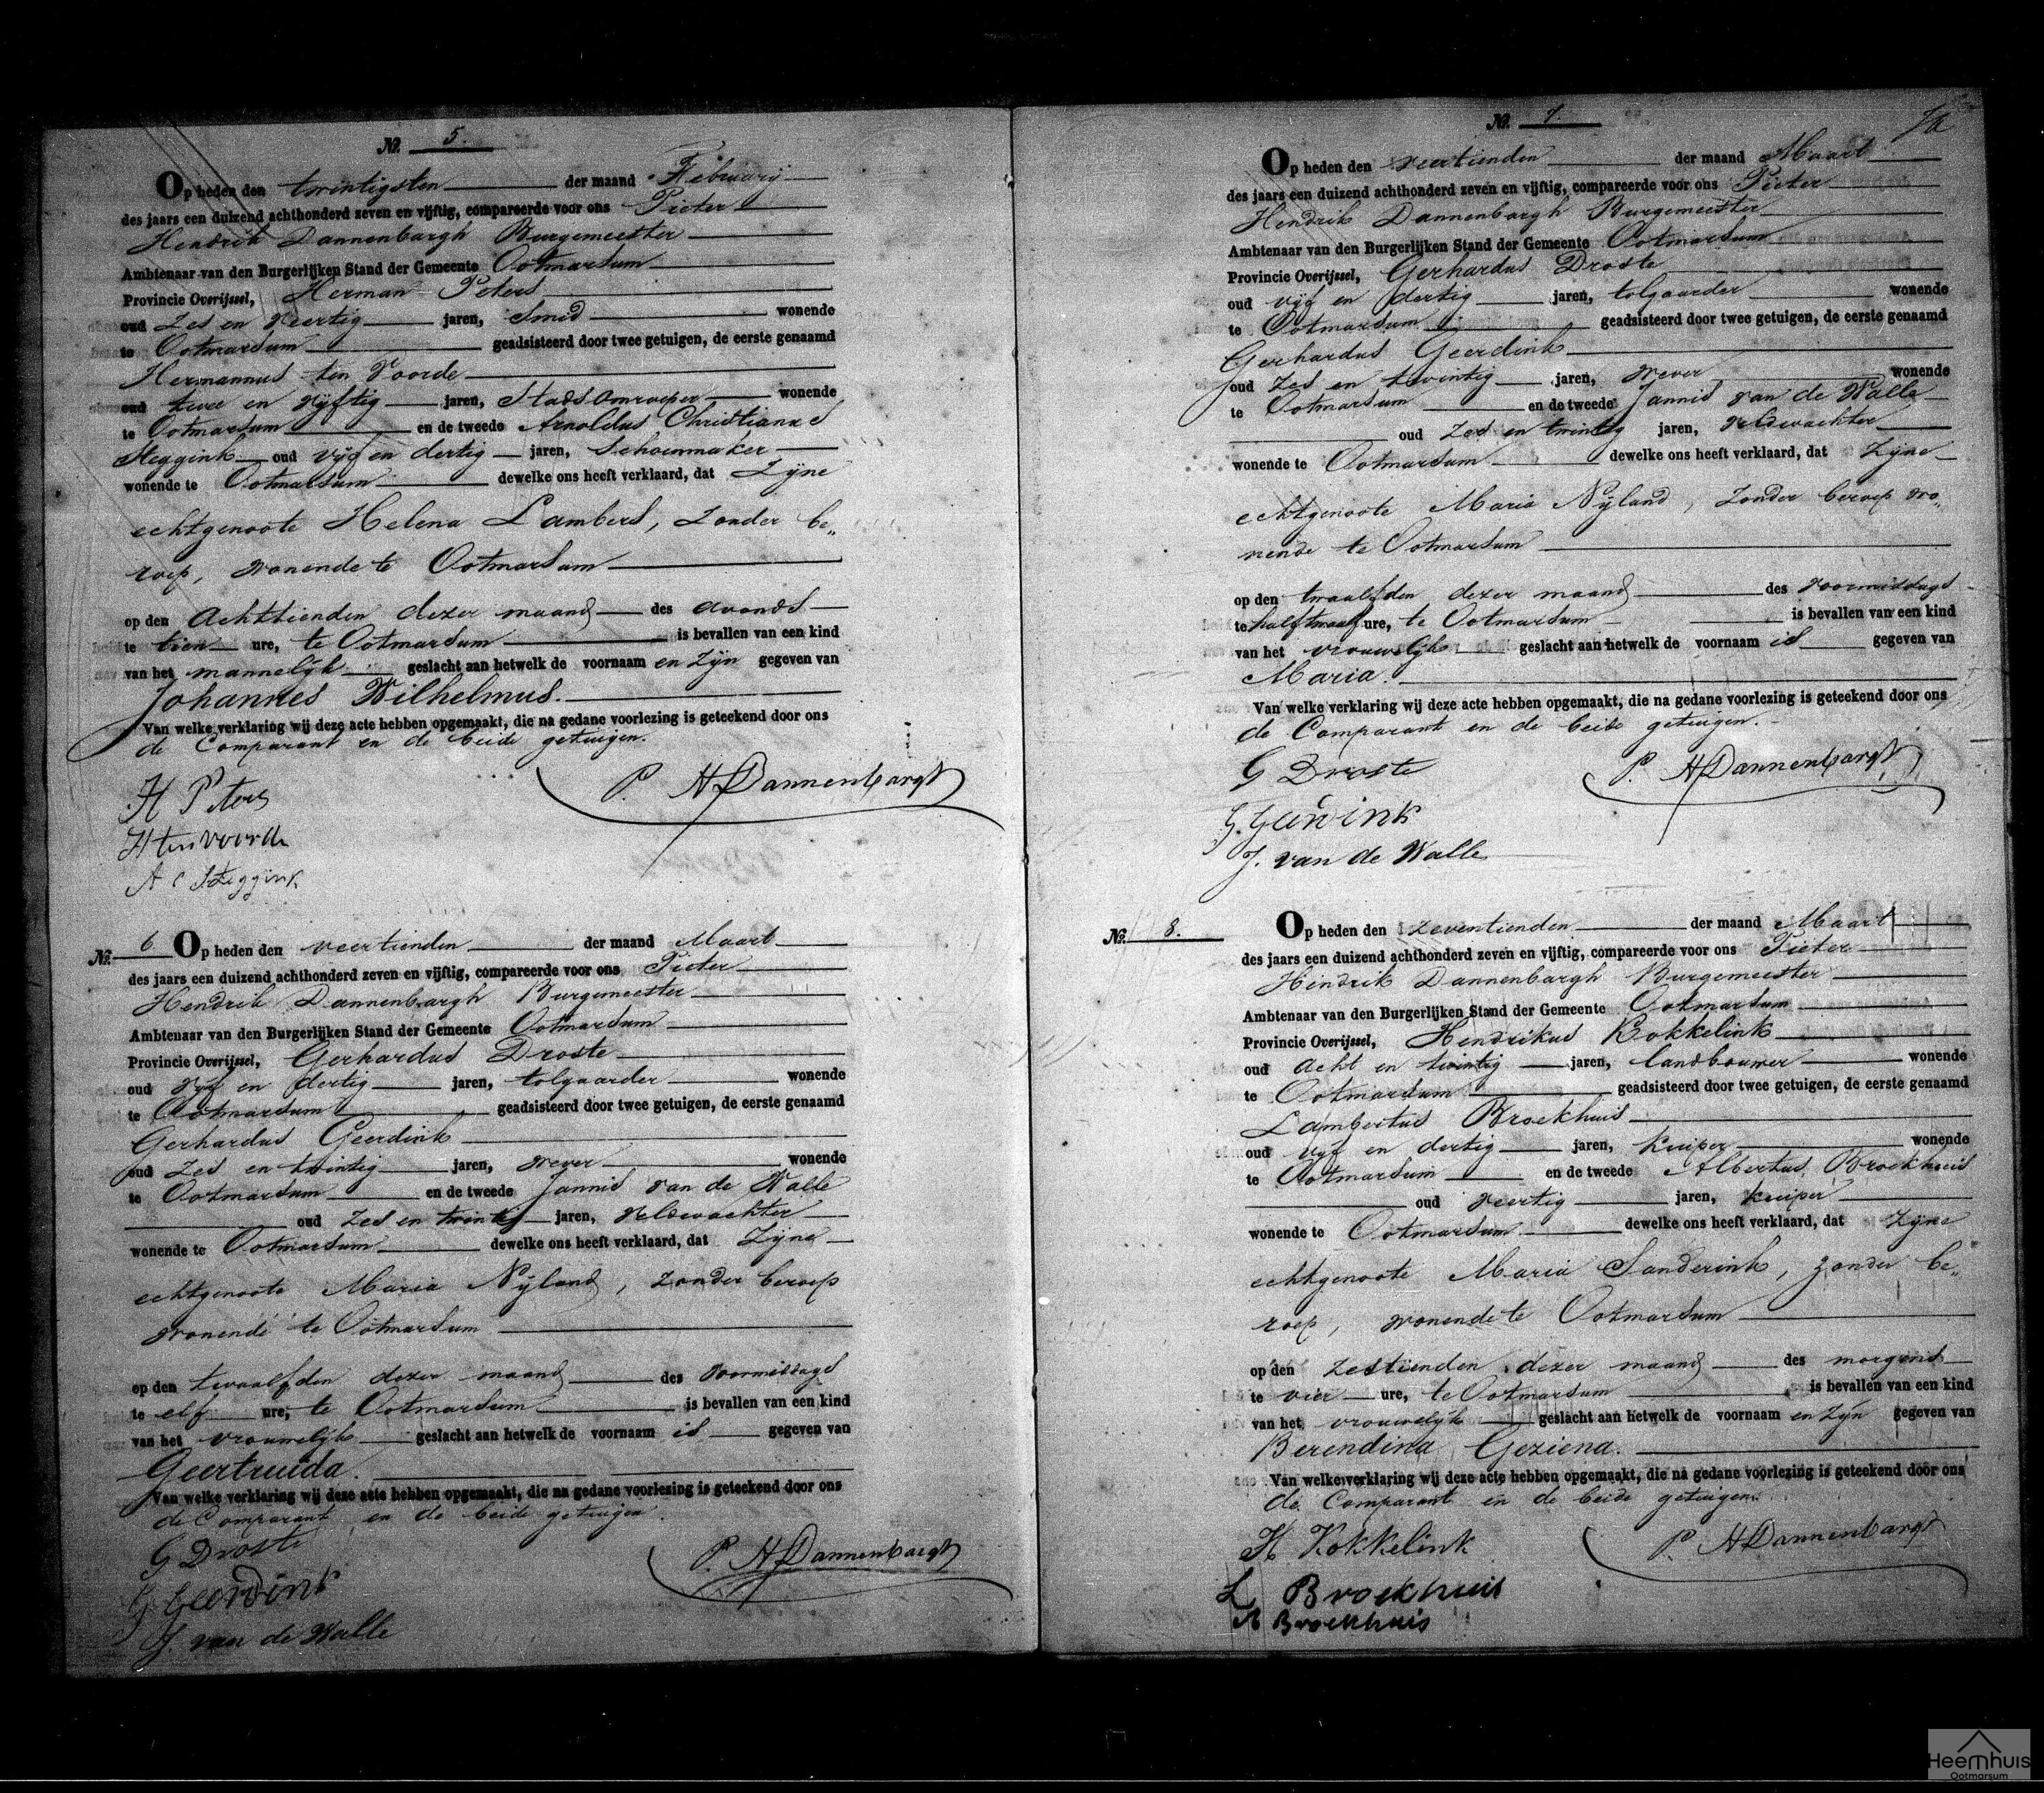 No. 5.
Op heden den twintigsten der maand Februarij
des jaars een duizend achthonderd zeven en vijftig, compareerde voor ons Pieter
Hendrik Dannenbargh Burgemeester
Ambtenaar van den Burgerlijken Stand der Gemeente Ootmarsum
Provincie Overijssel, Herman Peters
oud Zes en veertig jaren, Smid wonende
te Ootmarsum geadsisteerd door twee getuigen, de eerste genaamd
Hermannus ten Voorde
oud twee en vijftig jaren, Stads omroeper wonende
te Ootmarsum en de tweede Arnoldus Christianus
Steggink oud vijf en dertig jaren, Schoenmaker
wonende te Ootmarsum dewelke ons heeft verklaard, dat Zijne
echtgenoote Helena Lambers, Zonder be„
roep, wonende te Ootmarsum
op den Achttienden dezer maand des avonds
te tien ure, te Ootmarsum is bevallen van een kind
van het mannelijk geslacht aan hetwelk de voornaam en Zijn gegeven van
Johannes Wilhelmus.
Van welke verklaring wij deze acte hebben opgemaakt, die na gedane voorlezing is geteekend door ons
de Comparant en de beide getuigen.
H Peters
P. H Dannenbargh
H ten voorde
A C Steggink
No. 6 Op heden den veertienden der maand Maart
des jaars een duizend achthonderd zeven en vijftig, compareerde voor ons Pieter
Hendrik Dannenbargh Burgemeester
Ambtenaar van den Burgerlijken Stand der Gemeente Ootmarsum
Provincie Overijssel, Gerhardus Droste
oud vijf en dertig jaren, tolgaarder wonende
te Ootmarsum geadsisteerd door twee getuigen, de eerste genaamd
Gerhardus Geerdink
oud Zes en twintig jaren, wever wonende
te Ootmarsum en de tweede Jannis van de Walle
oud Zes en twintig jaren, veldwachter
wonende te Ootmarsum dewelke ons heeft verklaard, dat Zijne
echtgenoote Maria Nijland, Zonder beroep
wonende te Ootmarsum
op den twaalfden dezer maand des voormiddags
te elf ure, te Ootmarsum is bevallen van een kind
van het vrouwelijk geslacht aan hetwelk de voornaam is gegeven van
Geertruida.
Van welke verklaring wij deze acte hebben opgemaakt, die na gedane voorlezing is geteekend door ons
de Comparant en de beide getuigen.
G Droste
P. H Dannenbargh
G. Geerdink
J. van de Walle
7a
No. 7.
Op heden den veertienden der maand Maart
des jaars een duizend achthonderd zeven en vijftig, compareerde voor ons Pieter
Hendrik Dannenbargh Burgemeester
Ambtenaar van den Burgerlijken Stand der Gemeente Ootmarsum
Provincie Overijssel, Gerhardus Droste
oud vijf en dertig jaren, tolgaarder wonende
te Ootmarsum geadsisteerd door twee getuigen, de eerste genaamd
Gerhardus Geerdink
oud Zes en twintig jaren, wever wonende
te Ootmarsum en de tweede Jannis van de Walle
oud Zes en twintig jaren, veldwachter
wonende te Ootmarsum dewelke ons heeft verklaard, dat Zijne
echtgenoote Maria Nijland, Zonder beroep wo„
nende te Ootmarsum
op den twaalfden dezer maand des voormiddags
te half twaalf ure, te Ootmarsum is bevallen van een kind
van het vrouwelijk geslacht aan hetwelk de voornaam is gegeven van
Maria.
Van welke verklaring wij deze acte hebben opgemaakt, die na gedane voorlezing is geteekend door ons
de Comparant en de beide getuigen.
G Droste
P. H Dannenbargh
G. Geerdink
J. van de Walle
No. 8. Op heden den zeventienden der maand Maart
des jaars een duizend achthonderd zeven en vijftig, compareerde voor ons Pieter
Hendrik Dannenbargh Burgemeester
Ambtenaar van den Burgerlijken Stand der Gemeente Ootmarsum
Provincie Overijssel, Hendrikus Kokkelink
oud Acht en twintig jaren, landbouwer wonende
te Ootmarsum geadsisteerd door twee getuigen, de eerste genaamd
Lambertus Broekhuis
oud vijf en dertig jaren, kuiper wonende
te Ootmarsum en de tweede Albertus Broekhuis
oud veertig jaren, kuiper
wonende te Ootmarsum dewelke ons heeft verklaard, dat Zijne
echtgenoote Maria Sanderink, Zonder be„
roep, wonende te Ootmarsum
op den Zestienden dezer maand des morgens
te vier ure, te Ootmarsum is bevallen van een kind
van het vrouwelijk geslacht aan hetwelk de voornaam en Zijn gegeven van
Berendina Geziena.
Van welke verklaring wij deze acte hebben opgemaakt, die na gedane voorlezing is geteekend door ons
de Comparant en de beide getuigen.
H Kokkelink
P. H Dannenbargh
L Broekhuis
A Broekhuis
Heemhuis
Ootmarsum